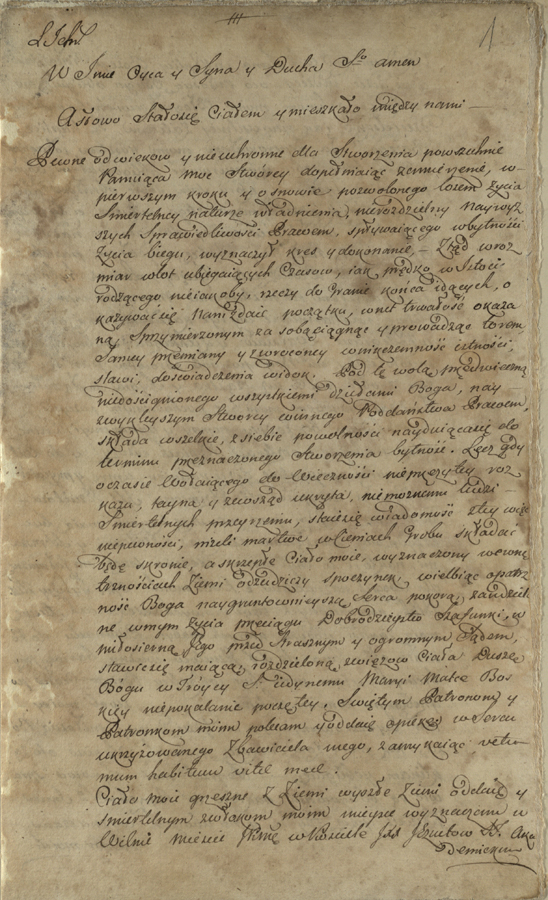 1
W Imie Oyca y Syna y Ducha Sgo amen
A Słowo Stałosię Ciałem y mieszkało między nami
Pewne od wieków y nieuchronne dla Stworzenia powszechnie
Panuiąca moc Stwórcy zamierzenie, w
pierwszym kroku y osnowie pozwolonego losem życia
Śmiertelney naturze władnienia, nierozdzielny naywyż
szych Sprawiedliwości Prawem, spływaiącego w bytności
życia biegu, wyznaczył kres y dokonanie, - Ztąd w roz
miar wlot ubiegaiących Czasow, iak prędko w Istocie
rodzącego nieiakoby, rzeczy do Granic końca idących, o
kazywać się początku, trwałość okaza
na, Sprzymierzonym za sobą ciągnąc y prowadząc torem,
Samey przemiany y zwroconey w nikczemność istności,
stawi, doświadczenia widok. Pod tę wolą przedwieczną
niedoścignionego wszystkiemi dziełami Boga, nay
zwykleyszym Stworcy winnego Poddaństwa Prawem,
składa wszelkie, z siebie powolności nayduiące się do
terminu przeznaczonego Stworzenia bytność. Lecz gdy
o czasie wołaiącego do Wieczności nieprzeżytey roz
kazu, tayna y zewsząd ukryta, niemożnemu ludzi
Śmiertelnych przeyrzeniu, staie się wiadomość z tey więc
niepewności, nizeli martwe w Cieniach Grobu składać
będę skronie, a skrzepłe Ciało moie, wyznaczony we wnę
trznościach Ziemi odziedziczy spoczynek, wielbiąc opatrz
ność Boga naygruntownieyszą Serca pokorą, za udziel
ne w mym życia przeciągu Dobrodzieystw Szafunki, w
miłosierną Jego przed Strasznym y ogromnym Sądem,
stawić się maiącą, rozdzieloną z więzow Ciała Duszę
Bogu w Tróycy S. Jedynemu Maryi Matce Bos
kiey niepokalanie poczętey, Swiętym Patronom y
Patronkom moim polecam y oddaię opiekę w Sercu
ukrzyżowanego Zbawiciela mego, zamykaiąc
habitum vitæ meæ.
Ciało moie grzeszne z Ziemi wyszłe Ziemi oddaię y
śmiertelnym zwłokom moim mieysce wyznaczam w
Wilnie Mieście w Kościele Aka
demickim